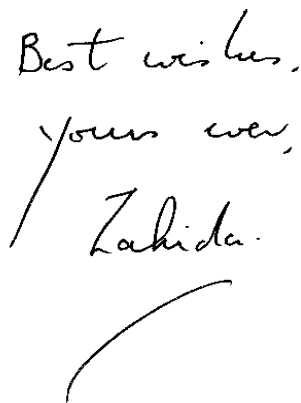 Best wishes,
yours ever,
Zahida.